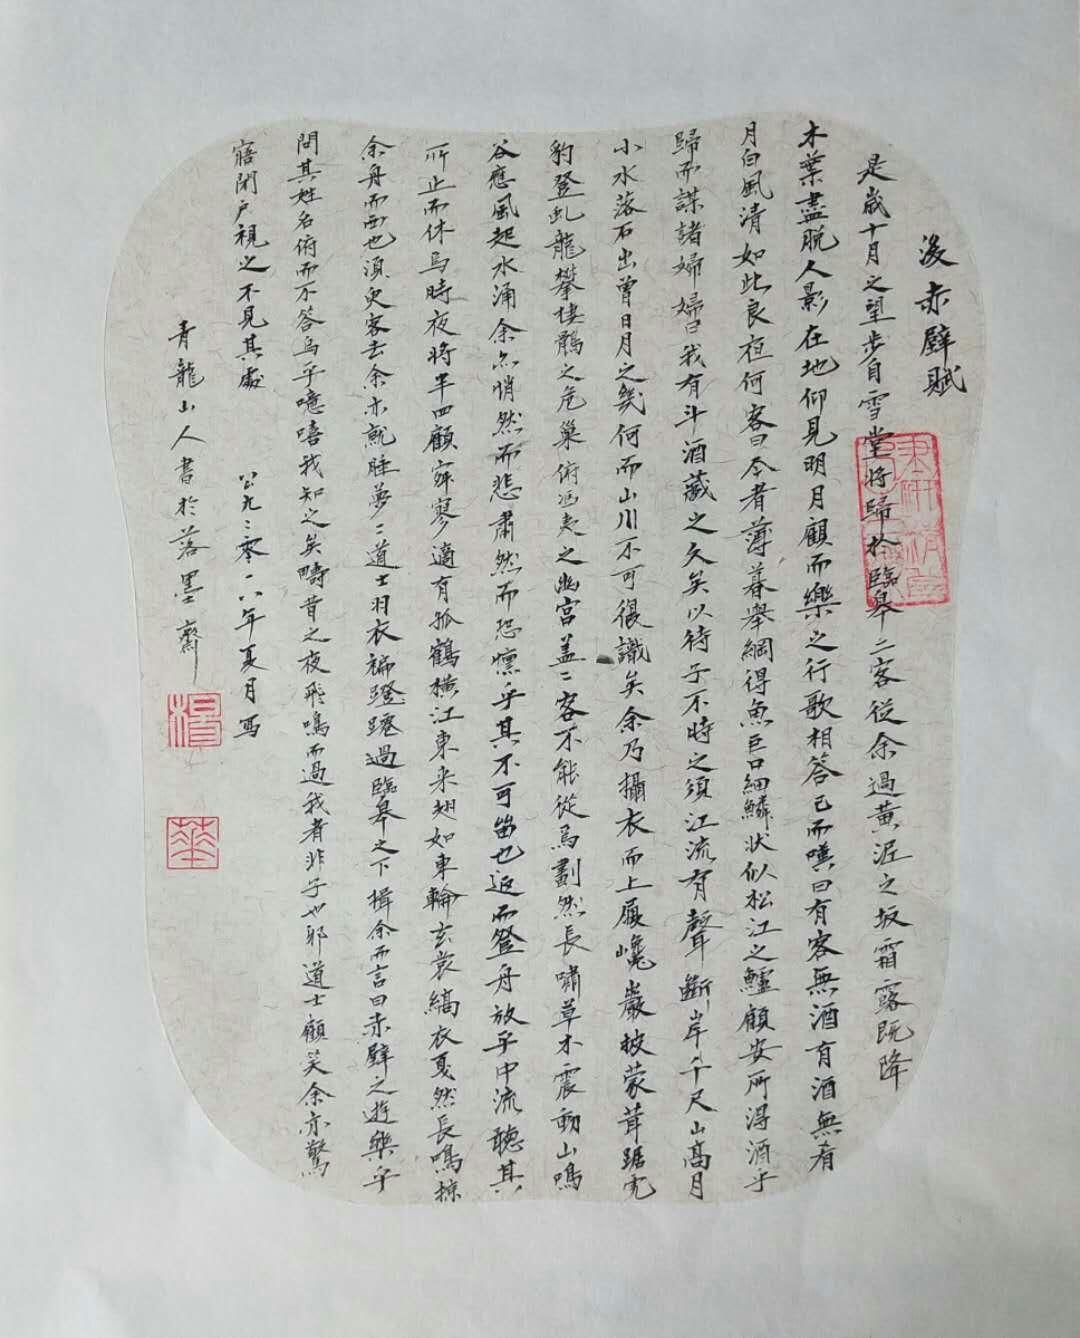 後赤壁賦
是歲十月之望步自雪堂將歸於臨皋二客從余過黃泥之坂霜露既降
木葉盡脫人影在地仰見明月顧而樂之行歌相答已而嘆曰有客無酒有酒無肴
月白風清如此良夜何客曰今者薄暮舉網得魚巨口細鱗狀似松江之鱸顧安所得酒乎
歸而謀諸婦婦曰我有斗酒藏之久矣以待子不時之須江流有聲斷岸千尺山高月
小水落石出曾日月之幾何而山川不可復識矣余乃攝衣而上履巉巖披蒙茸踞虎
豹登虬龍攀棲鶻之危巢俯馮夷之幽宮蓋二客不能從焉劃然長嘯草木震動山鳴
谷應風起水涌余亦悄然而悲肅然而恐凜乎其不可留也返而登舟放乎中流聽其
所止而休焉時夜將半四顧寂寥適有孤鶴橫江東來翅如車輪玄裳縞衣戛然長鳴掠
余舟而西也須臾客去余亦就睡夢二道士羽衣褊躚過臨皋之下揖余而言曰赤壁之遊樂乎
問其姓名俯而不答烏乎噫嘻我知之矣疇昔之夜飛鳴而過我者非子也耶道士顧笑余亦驚
寤開戶視之不見其處 公元二零一八年夏月寫
青龍山人書於落墨齋
楊
華